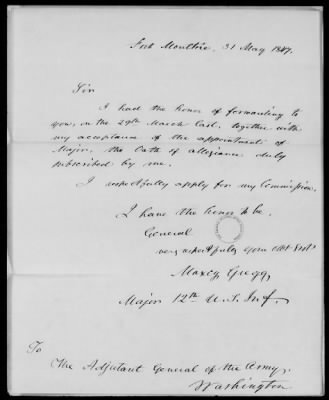 Fort Moultrie, 31 May 1847.
Sir
I had the honor of forwarding to
you, on the 29th March last, together with
my acceptance of the appointment of
Major, the Oath of allegiance duly
subscribed by me.
I respectfully apply for my Commission.
I have the honor to be,
General
very respectfully your obt Svt
Maxcy Gregg,
Major 12th U.S. Inf.
To
The Adjutant General of the Army,
Washington